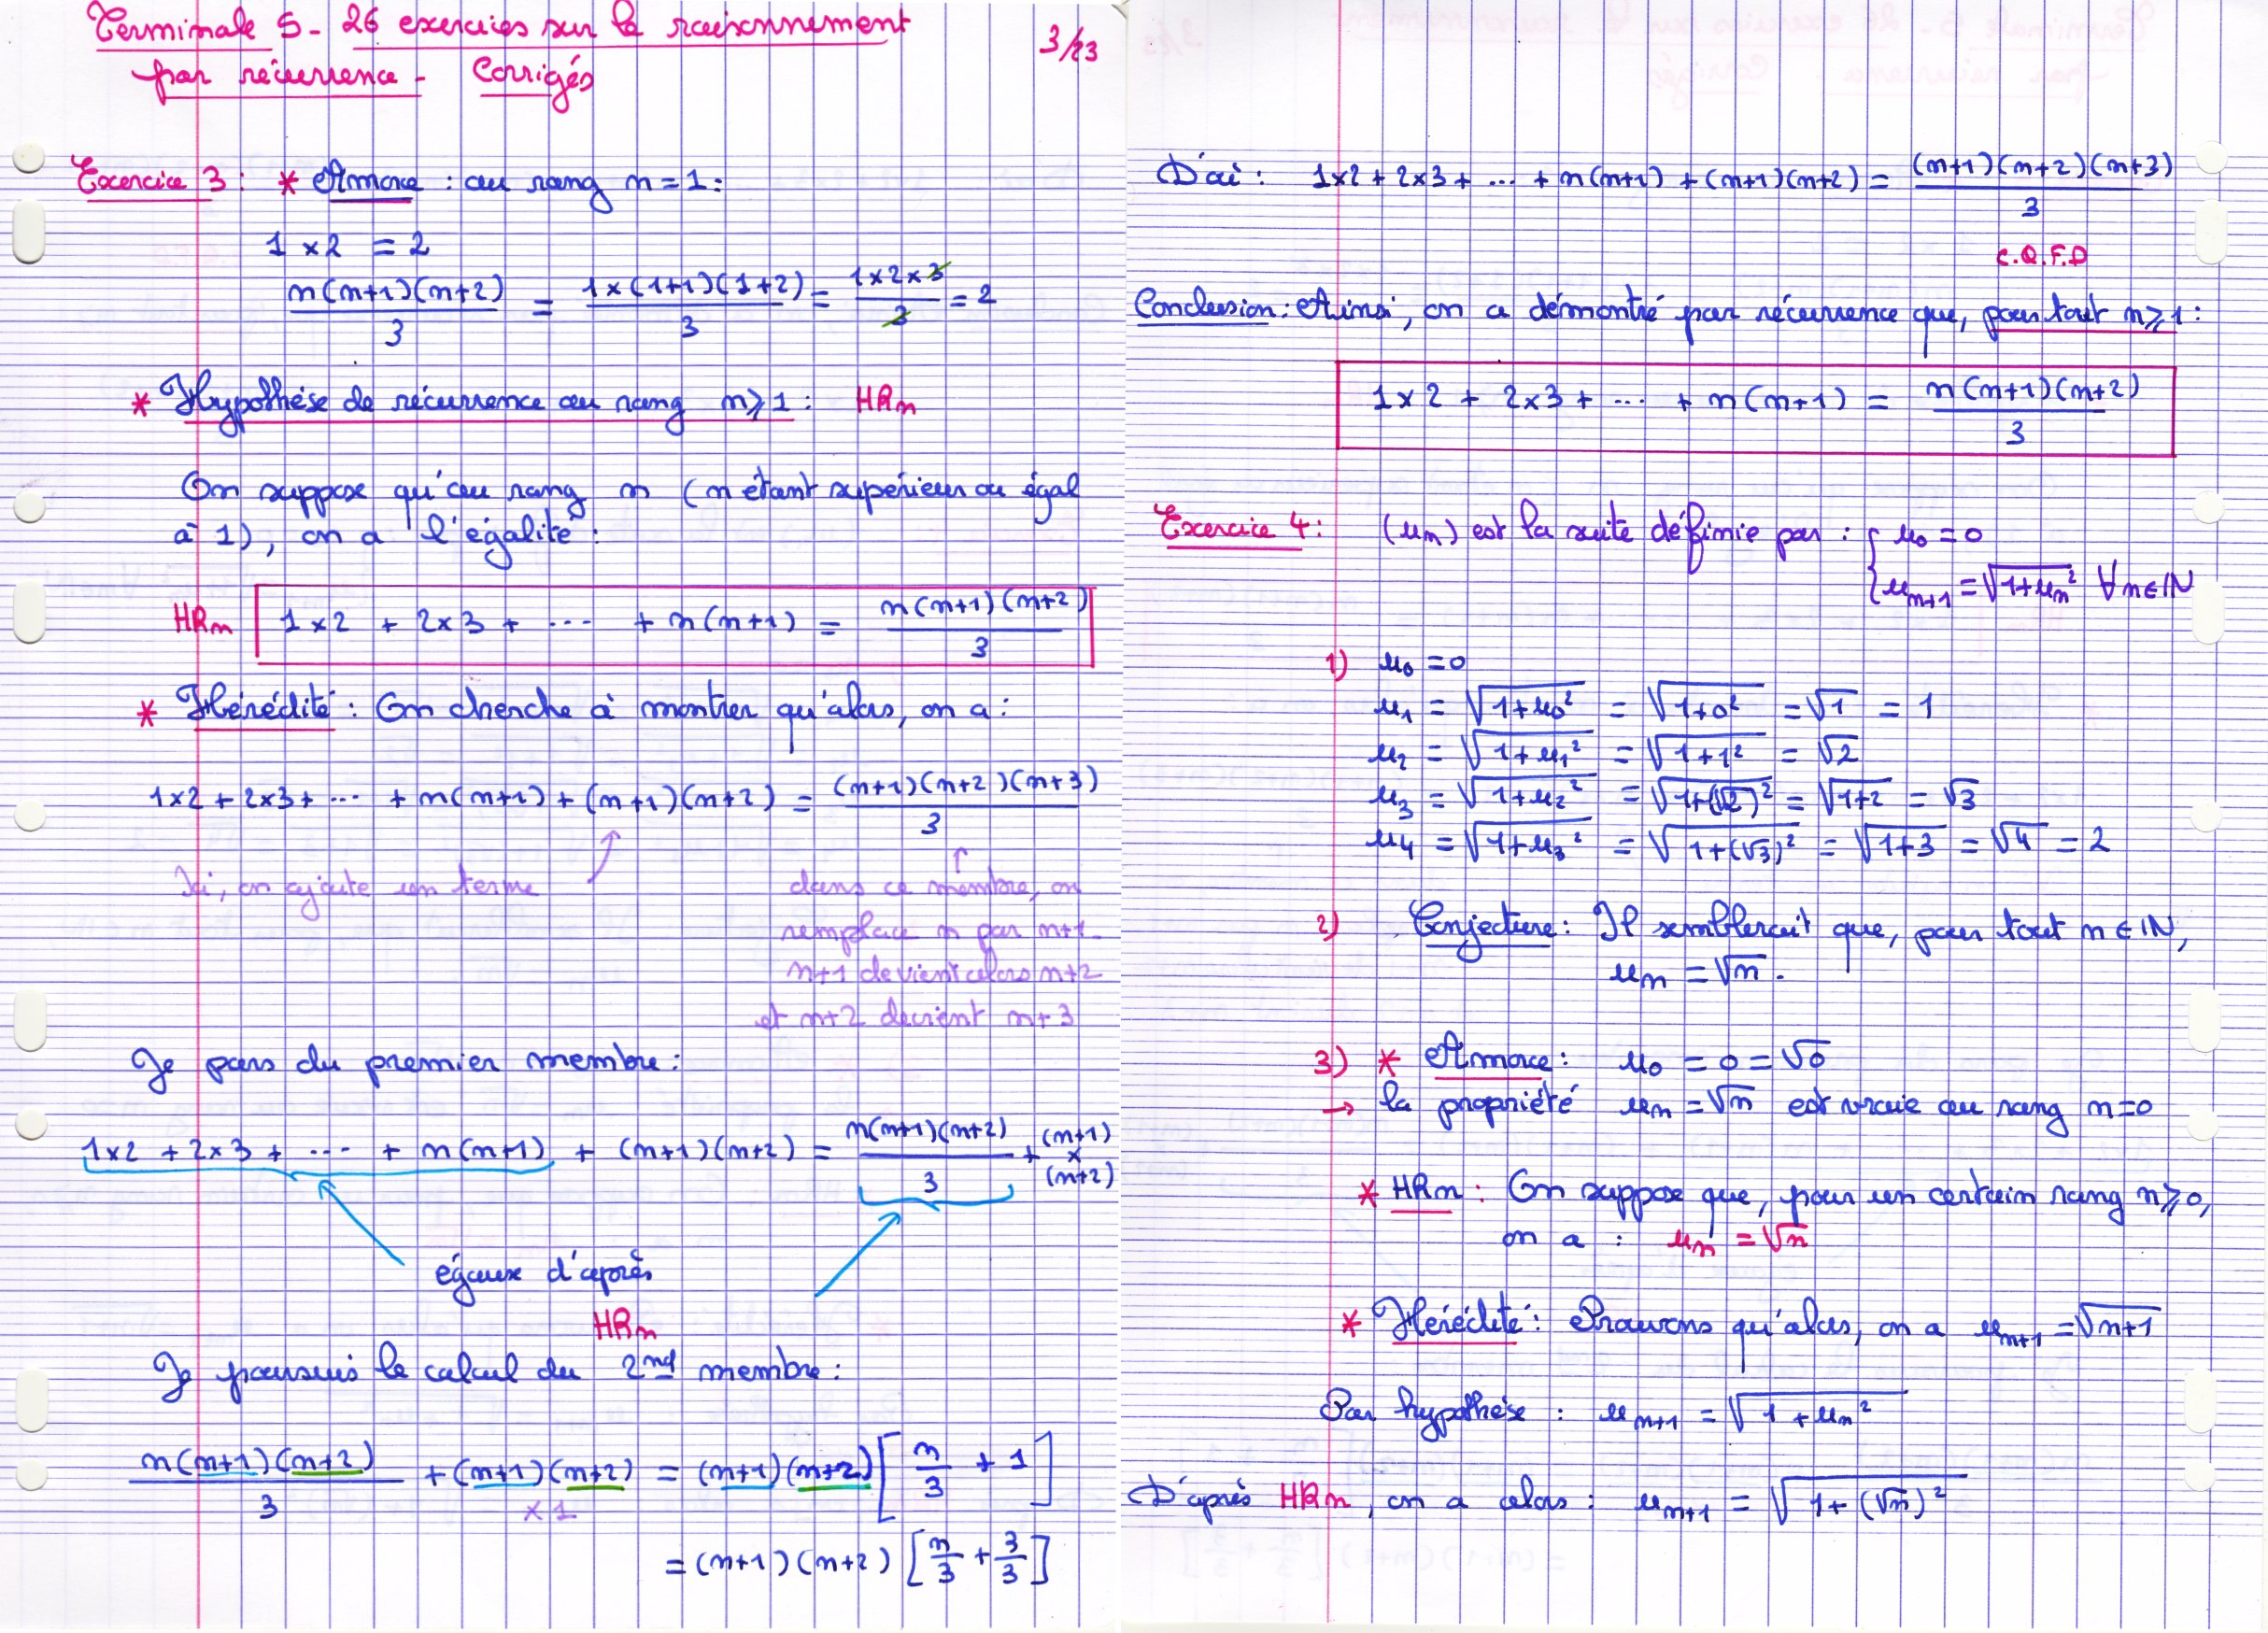 Terminale S - 26 exercices sur le raisonnement
par récurrence - Corrigés
3/23
Exercice 3 : * Amorce : au rang n = 1 :
1 × 2 = 2
n(n+1)(n+2)/3 = 1×(1+1)(1+2)/3 = 1×2×3/3 = 2
* Hypothèse de récurrence au rang n ⩾ 1 : HRn
On suppose qu'au rang n (n étant supérieur ou égal
à 1), on a l'égalité :
HRn 1×2 + 2×3 + ... + n(n+1) = n(n+1)(n+2)/3
* Hérédité : On cherche à montrer qu'alors, on a :
1×2 + 2×3 + ... + n(n+1) + (n+1)(n+2) = (n+1)(n+2)(n+3)/3
Ici, on ajoute un terme
dans ce membre, on
remplace n par n+1.
n+1 devient alors n+2
et n+2 devient n+3
Je pars du premier membre :
1×2 + 2×3 + ... + n(n+1) + (n+1)(n+2) = n(n+1)(n+2)/3 + (n+1) × (n+2)
égaux d'après
HRn
Je poursuis le calcul du 2nd membre :
n(n+1)(n+2)/3 + (n+1)(n+2) = (n+1)(n+2)[n/3 + 1]
×1
= (n+1)(n+2)[n/3 + 3/3]
D'où : 1×2 + 2×3 + ... + n(n+1) + (n+1)(n+2) = (n+1)(n+2)(n+3)/3
C.Q.F.D
Conclusion : Ainsi, on a démontré par récurrence que, pour tout n ⩾ 1 :
1×2 + 2×3 + ... + n(n+1) = n(n+1)(n+2)/3
Exercice 4 : (un) est la suite définie par : { u0 = 0
un+1 = √(1+un²) ∀n∈ℕ
1) u0 = 0
u1 = √(1+u0²) = √(1+0²) = √1 = 1
u2 = √(1+u1²) = √(1+1²) = √2
u3 = √(1+u2²) = √(1+(√2)²) = √(1+2) = √3
u4 = √(1+u3²) = √(1+(√3)²) = √(1+3) = √4 = 2
2) Conjecture : Il semblerait que, pour tout n ∈ ℕ,
un = √n.
3) * Amorce : u0 = 0 = √0
→ la propriété un = √n est vraie au rang n=0
* HRn : On suppose que, pour un certain rang n ⩾ 0,
on a : un = √n
* Hérédité : Prouvons qu'alors, on a un+1 = √(n+1)
Par hypothèse : un+1 = √(1 + un²)
D'après HRn, on a alors : un+1 = √(1+(√n)²)